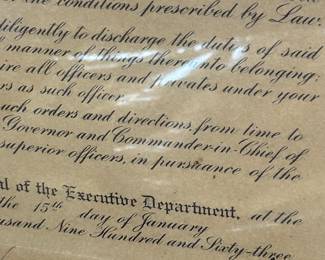 the conditions prescribed by Law.
diligently to discharge the duties of said
manner of things thereunto belonging;
ire all officers and privates under your
rs as such officer
uch orders and directions, from time to
Governor and Commander-in-Chief of
superior officers, in pursuance of the
al of the Executive Department, at the
the 15th day of January
usand Nine Hundred and Sixty-three